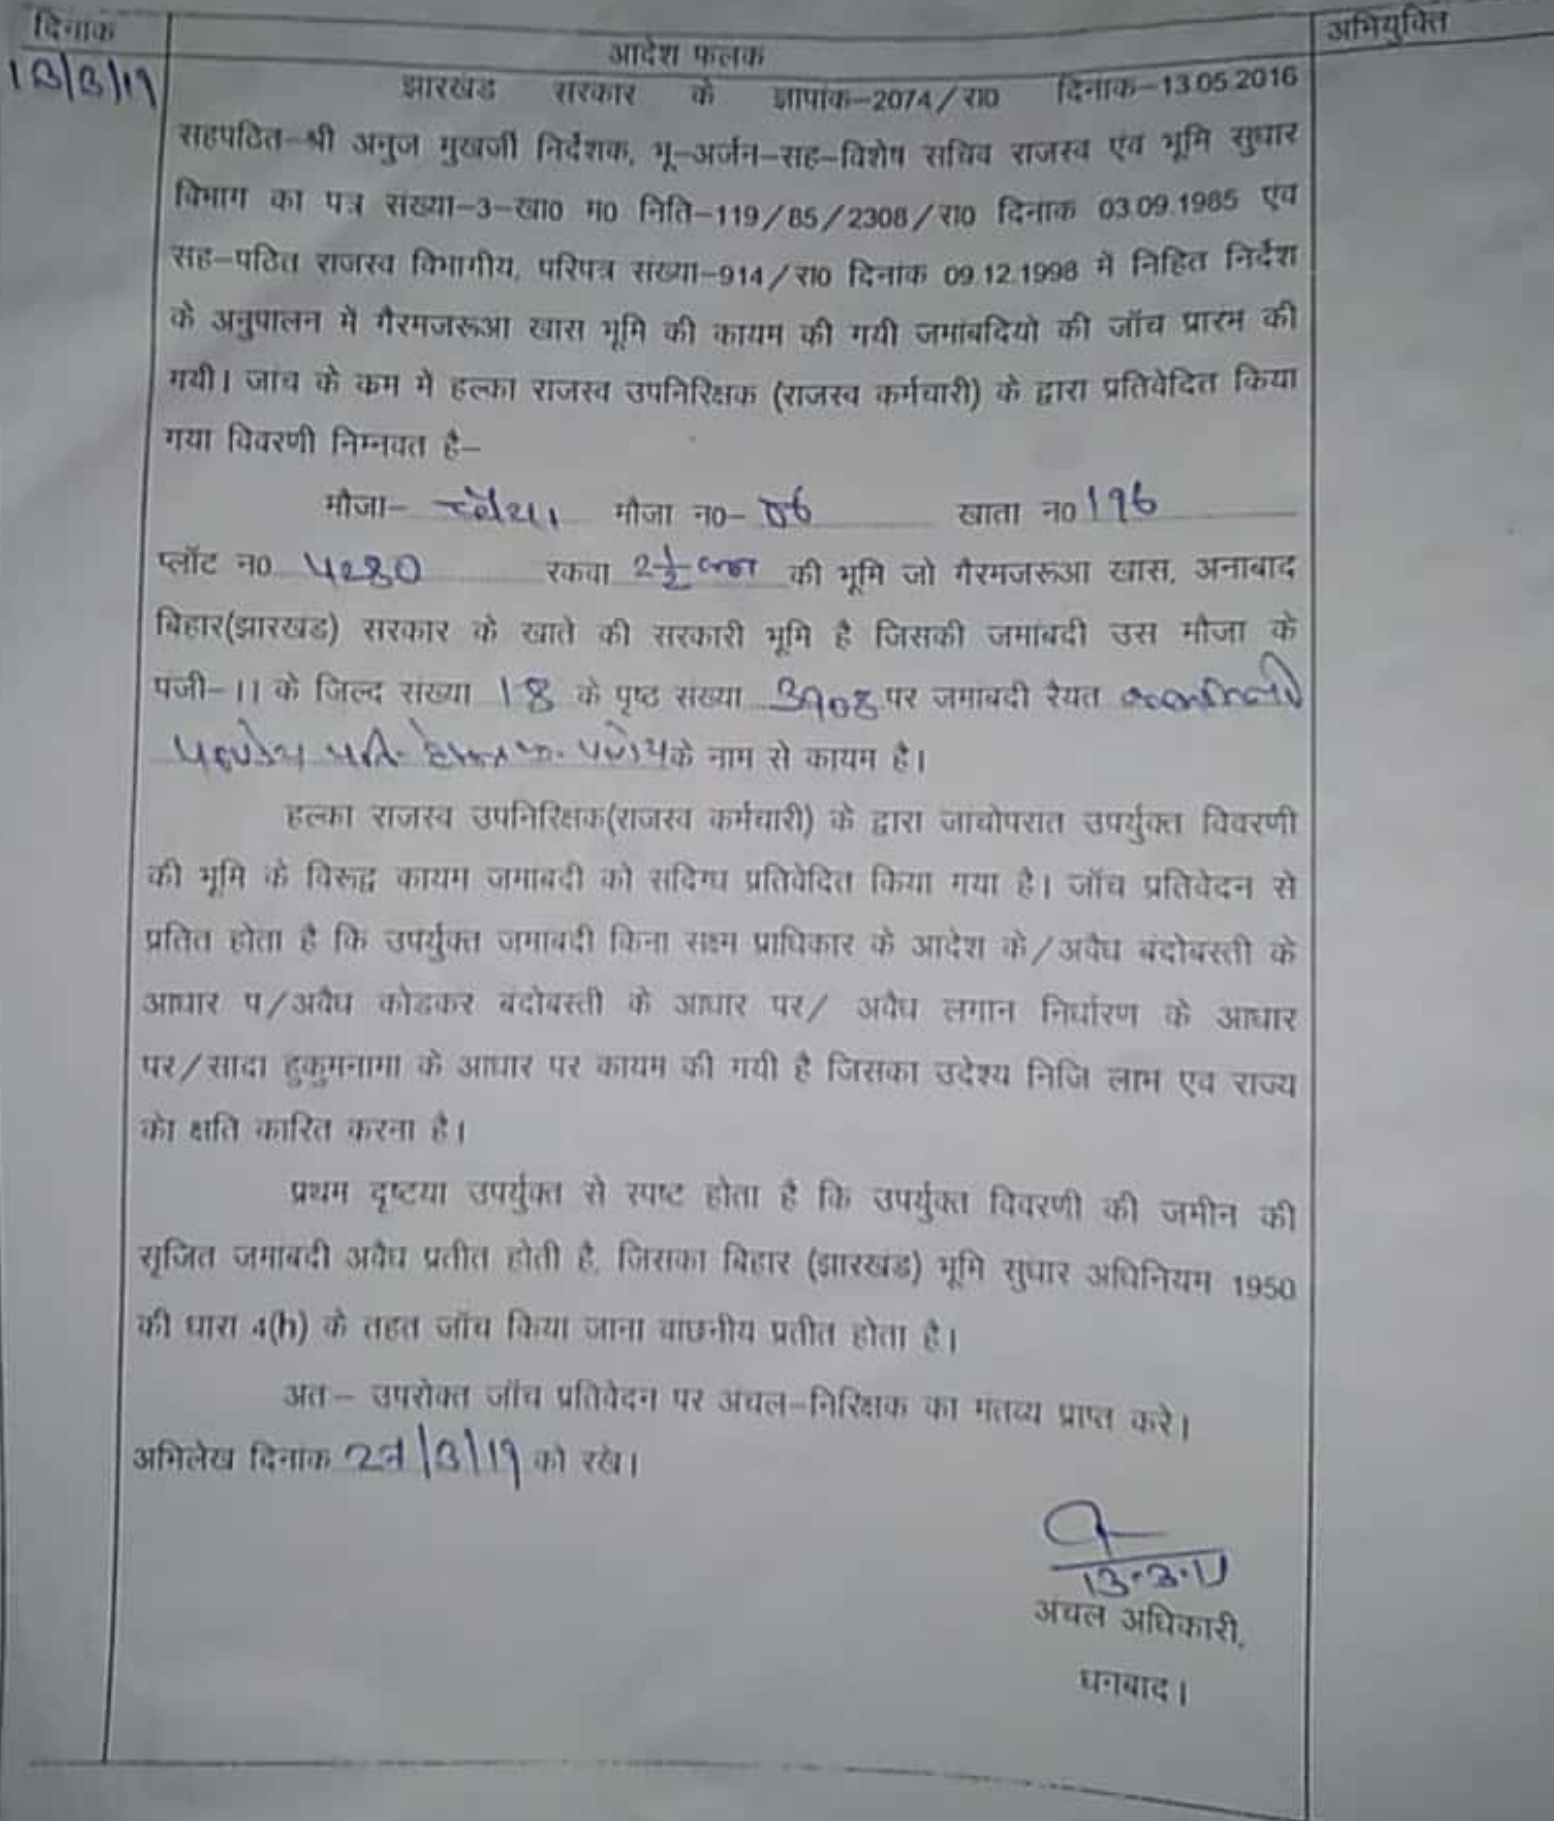 दिनांक
आदेश फलक
अभियुक्ति
13/3/19
झारखंड सरकार के ज्ञापांक-2074/रा0 दिनांक-13.05.2016
सहपठित-श्री अनुज मुखर्जी निर्देशक, भू-अर्जन-सह-विशेष सचिव राजस्व एंव भूमि सुधार
विभाग का पत्र संख्या-3-खा0 म0 निति-119/85/2308/रा0 दिनांक 03.09.1985 एंव
सह-पठित राजस्व विभागीय, परिपत्र संख्या-914/रा0 दिनांक 09.12.1998 में निहित निर्देश
के अनुपालन में गैरमजरूआ खास भूमि की कायम की गयी जमांबदियो की जॉच प्रारंभ की
गयी। जांच के कम में हल्का राजस्व उपनिरिक्षक (राजस्व कर्मचारी) के द्वारा प्रतिवेदित किया
गया विवरणी निम्नवत है-
मौजा- मौजा न0- 06 खाता न0 196
प्लॉट न0 4280 रकवा 2½ की भूमि जो गैरमजरूआ खास, अनाबाद
बिहार(झारखंड) सरकार के खाते की सरकारी भूमि है जिसकी जमांबदी उस मौजा के
पंजी-11 के जिल्द संख्या 18 के पृष्ठ संख्या 3908 पर जमांबदी रैयत
के नाम से कायम है।
हल्का राजस्व उपनिरिक्षक(राजस्व कर्मचारी) के द्वारा जांचोपरांत उपर्युक्त विवरणी
की भूमि के विरूद्व कायम जमांबदी को संदिग्ध प्रतिवेदित किया गया है। जॉच प्रतिवेदन से
प्रतित होता है कि उपर्युक्त जमाबंदी किना सक्ष्म प्राधिकार के आदेश के/अवैध बंदोबस्ती के
आधार प/अवैध कोडकर बंदोबस्ती के आधार पर/ अवैध लगान निर्धारण के आधार
पर/सादा हुकुमनामा के आधार पर कायम की गयी है जिसका उदेश्य निजि लाभ एंव राज्य
को क्षति कारित करना है।
प्रथम दृष्टया उपर्युक्त से स्पष्ट होता है कि उपर्युक्त विवरणी की जमीन की
सृजित जमांबदी अवैध प्रतीत होती है, जिसका बिहार (झारखंड) भूमि सुधार अधिनियम 1950
की धारा 4(h) के तहत जॉच किया जाना वांछनीय प्रतीत होता है।
अत- उपरोक्त जॉच प्रतिवेदन पर अंचल-निरिक्षक का मंतव्य प्राप्त करे।
अभिलेख दिनांक 27/3/19 को रखे।
13.3.19
अंचल अधिकारी,
धनबाद।